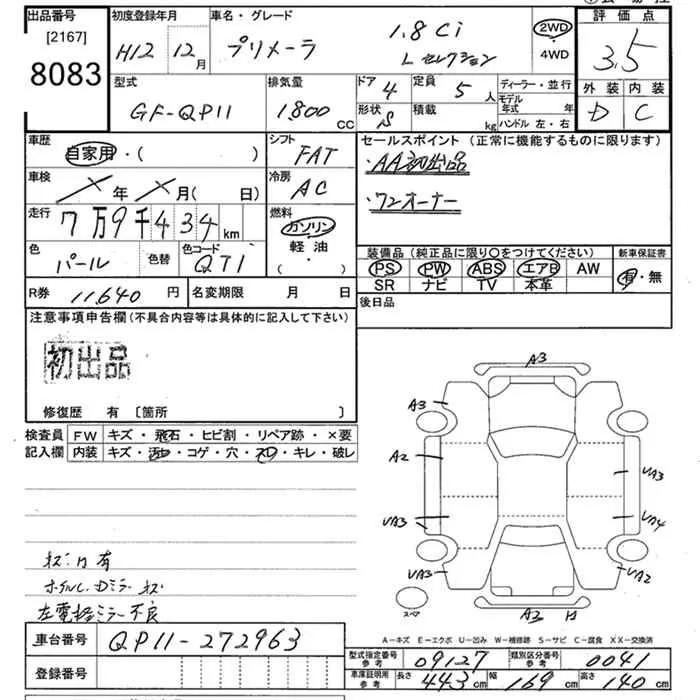 出品番号 初度登録年月 車名・グレード 評価点
[2167] 8083 H12年12月 プリメーラ 1.8Ci Lセレクション 2WD・4WD 3.5
型式 排気量 ドア 4 定員 5人 ディーラー・並行 外装 内装
GF-QP11 1800cc 形状 S 積載 kg モデル年式 年 ハンドル 左・右 D C
車歴 自家用・( ) シフト FAT セールスポイント (正常に機能するものに限ります)
・AA初出品
車検 年 月(日) 冷房 AC ・ワンオーナー
走行 7万9千434km 燃料 ガソリン 軽油 (・)
色 パール 色替 色コード QT1 装備品(純正品に限り○をつけてください) 新車保証書
PS PW ABS エアB AW 有・無
SR ナビ TV 本革
R券 11,640円 名変期限 月 日 後日品
注意事項申告欄(不具合内容等は具体的に記入して下さい)
初出品
修復歴 有 〔箇所 〕
検査員 FW キズ・飛石・ヒビ割・リペア跡・×要
記入欄 内装 キズ・汚レ・コゲ・穴・スレ・キレ・破レ
A3
A3
A2 UA3
UA3 UA4
UA3 UA2
スペア A3 H
キズ凹有
左電格ミラー不良
A-キズ E-エクボ U-凹み W-補修跡 S-サビ C-腐食 XX-交換済
車台番号 QP11-272963
型式指定番号 参考 09127 類別区分番号 参考 0041
登録番号 車庫証明用 参考 長さ 443cm 幅 169cm 高さ 140cm